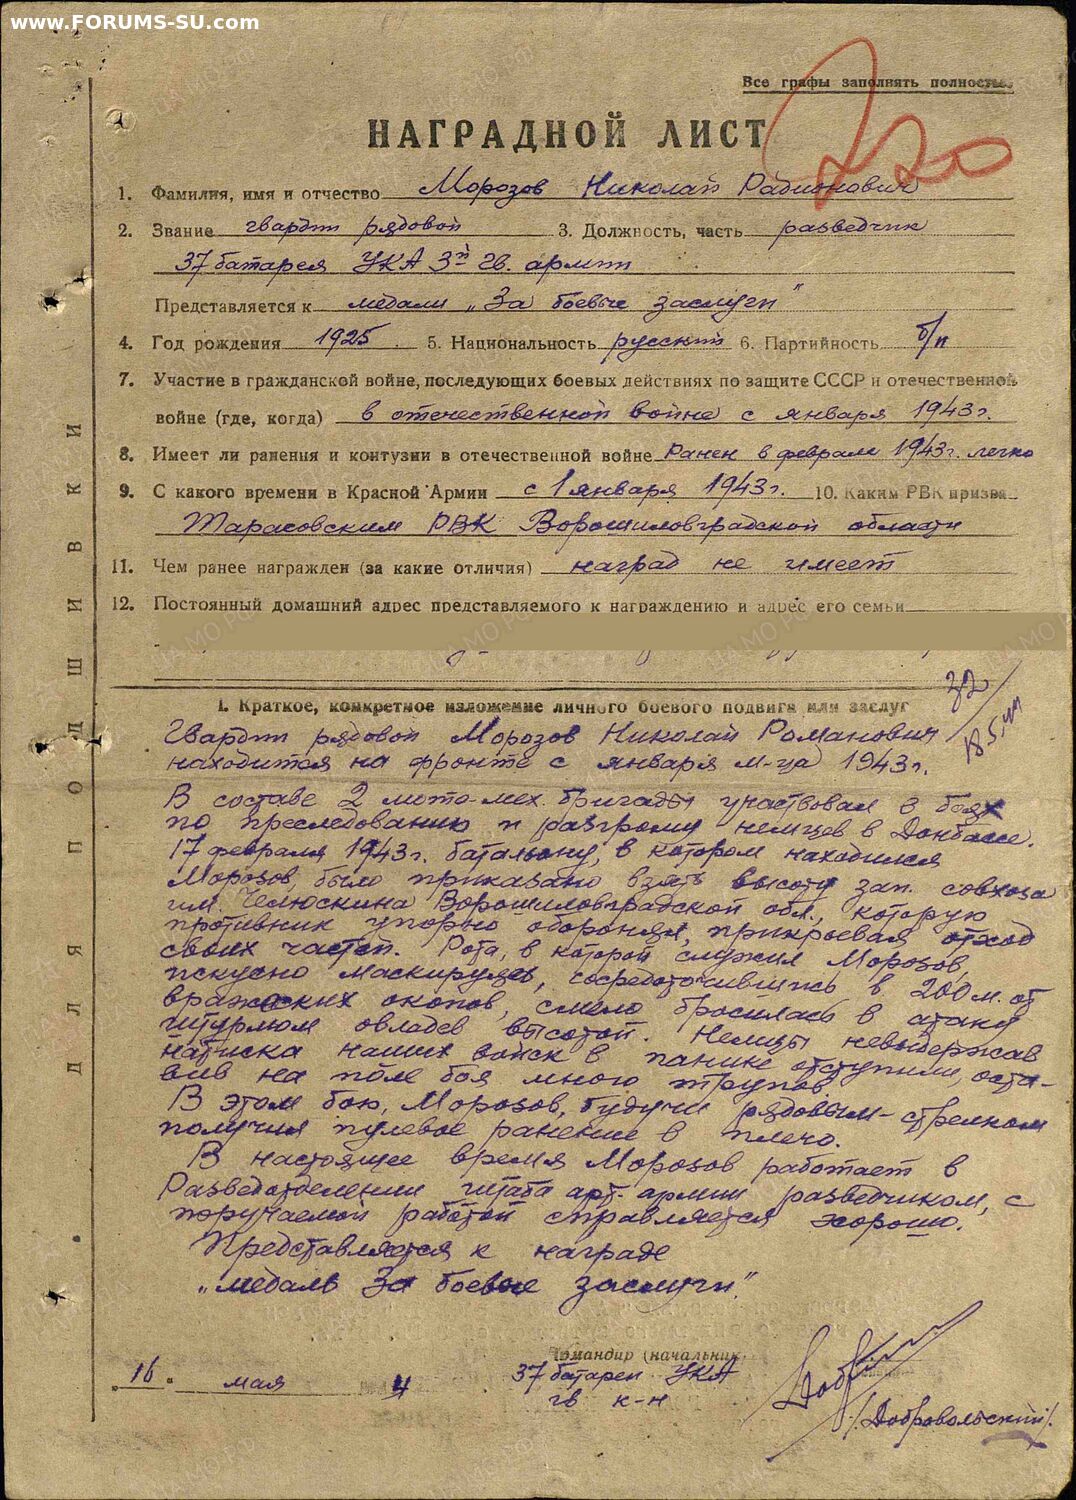 www.FORUMS-SU.com
Все графы заполнять полностью
220
НАГРАДНОЙ ЛИСТ
1. Фамилия, имя и отчество Морозов Николай Радионович
2. Звание гвардии рядовой 3. Должность, часть разведчик
37 батарея УКА 3й гв. армии
Представляется к медали „За боевые заслуги"
4. Год рождения 1925 5. Национальность русский 6. Партийность б/п
7. Участие в гражданской войне, последующих боевых действиях по защите СССР и отечественной
войне (где, когда) в отечественной войне с января 1943г.
8. Имеет ли ранения и контузии в отечественной войне Ранен в феврале 1943г. легко
9. С какого времени в Красной Армии с 1 января 1943г. 10. Каким РВК призва
Тарасовским РВК Ворошиловградской области
11. Чем ранее награжден (за какие отличия) наград не имеет
12. Постоянный домашний адрес представляемого к награждению и адрес его семьи
32
I. Краткое, конкретное изложение личного боевого подвига или заслуг
Гвардии рядовой Морозов Николай Романович
находится на фронте с января м-ца 1943г.
В составе 2 мото-мех. бригады участвовал в боях
по преследованию и разгрому немцев в Донбассе.
17 февраля 1943г. батальону, в котором находился
Морозов, было приказано взять высоту зап. совхоза
им. Челюскина Ворошиловградской обл., которую
противник упорно оборонял, прикрывая отход
своих частей. Рота, в которой служил Морозов,
искусно маскируясь, сосредоточившись в 200 м. от
вражеских окопов, смело бросилась в атаку
штурмом овладев высотой. Немцы невыдержав
натиска наших войск в панике отступили, оста-
вив на поле боя много трупов.
В этом бою, Морозов, будучи рядовым-стрелком
получил пулевое ранение в плечо.
В настоящее время Морозов работает в
Разведотделении штаба арт. армии разведчиком, с
поручаемой работой справляется хорошо.
Представляется к награде
„медаль За боевые заслуги".
Командир (начальник
37 батареи УКА
гв к-н
/Добровольский/.
„16" мая 4
ДЛЯ ПОДШИВКИ